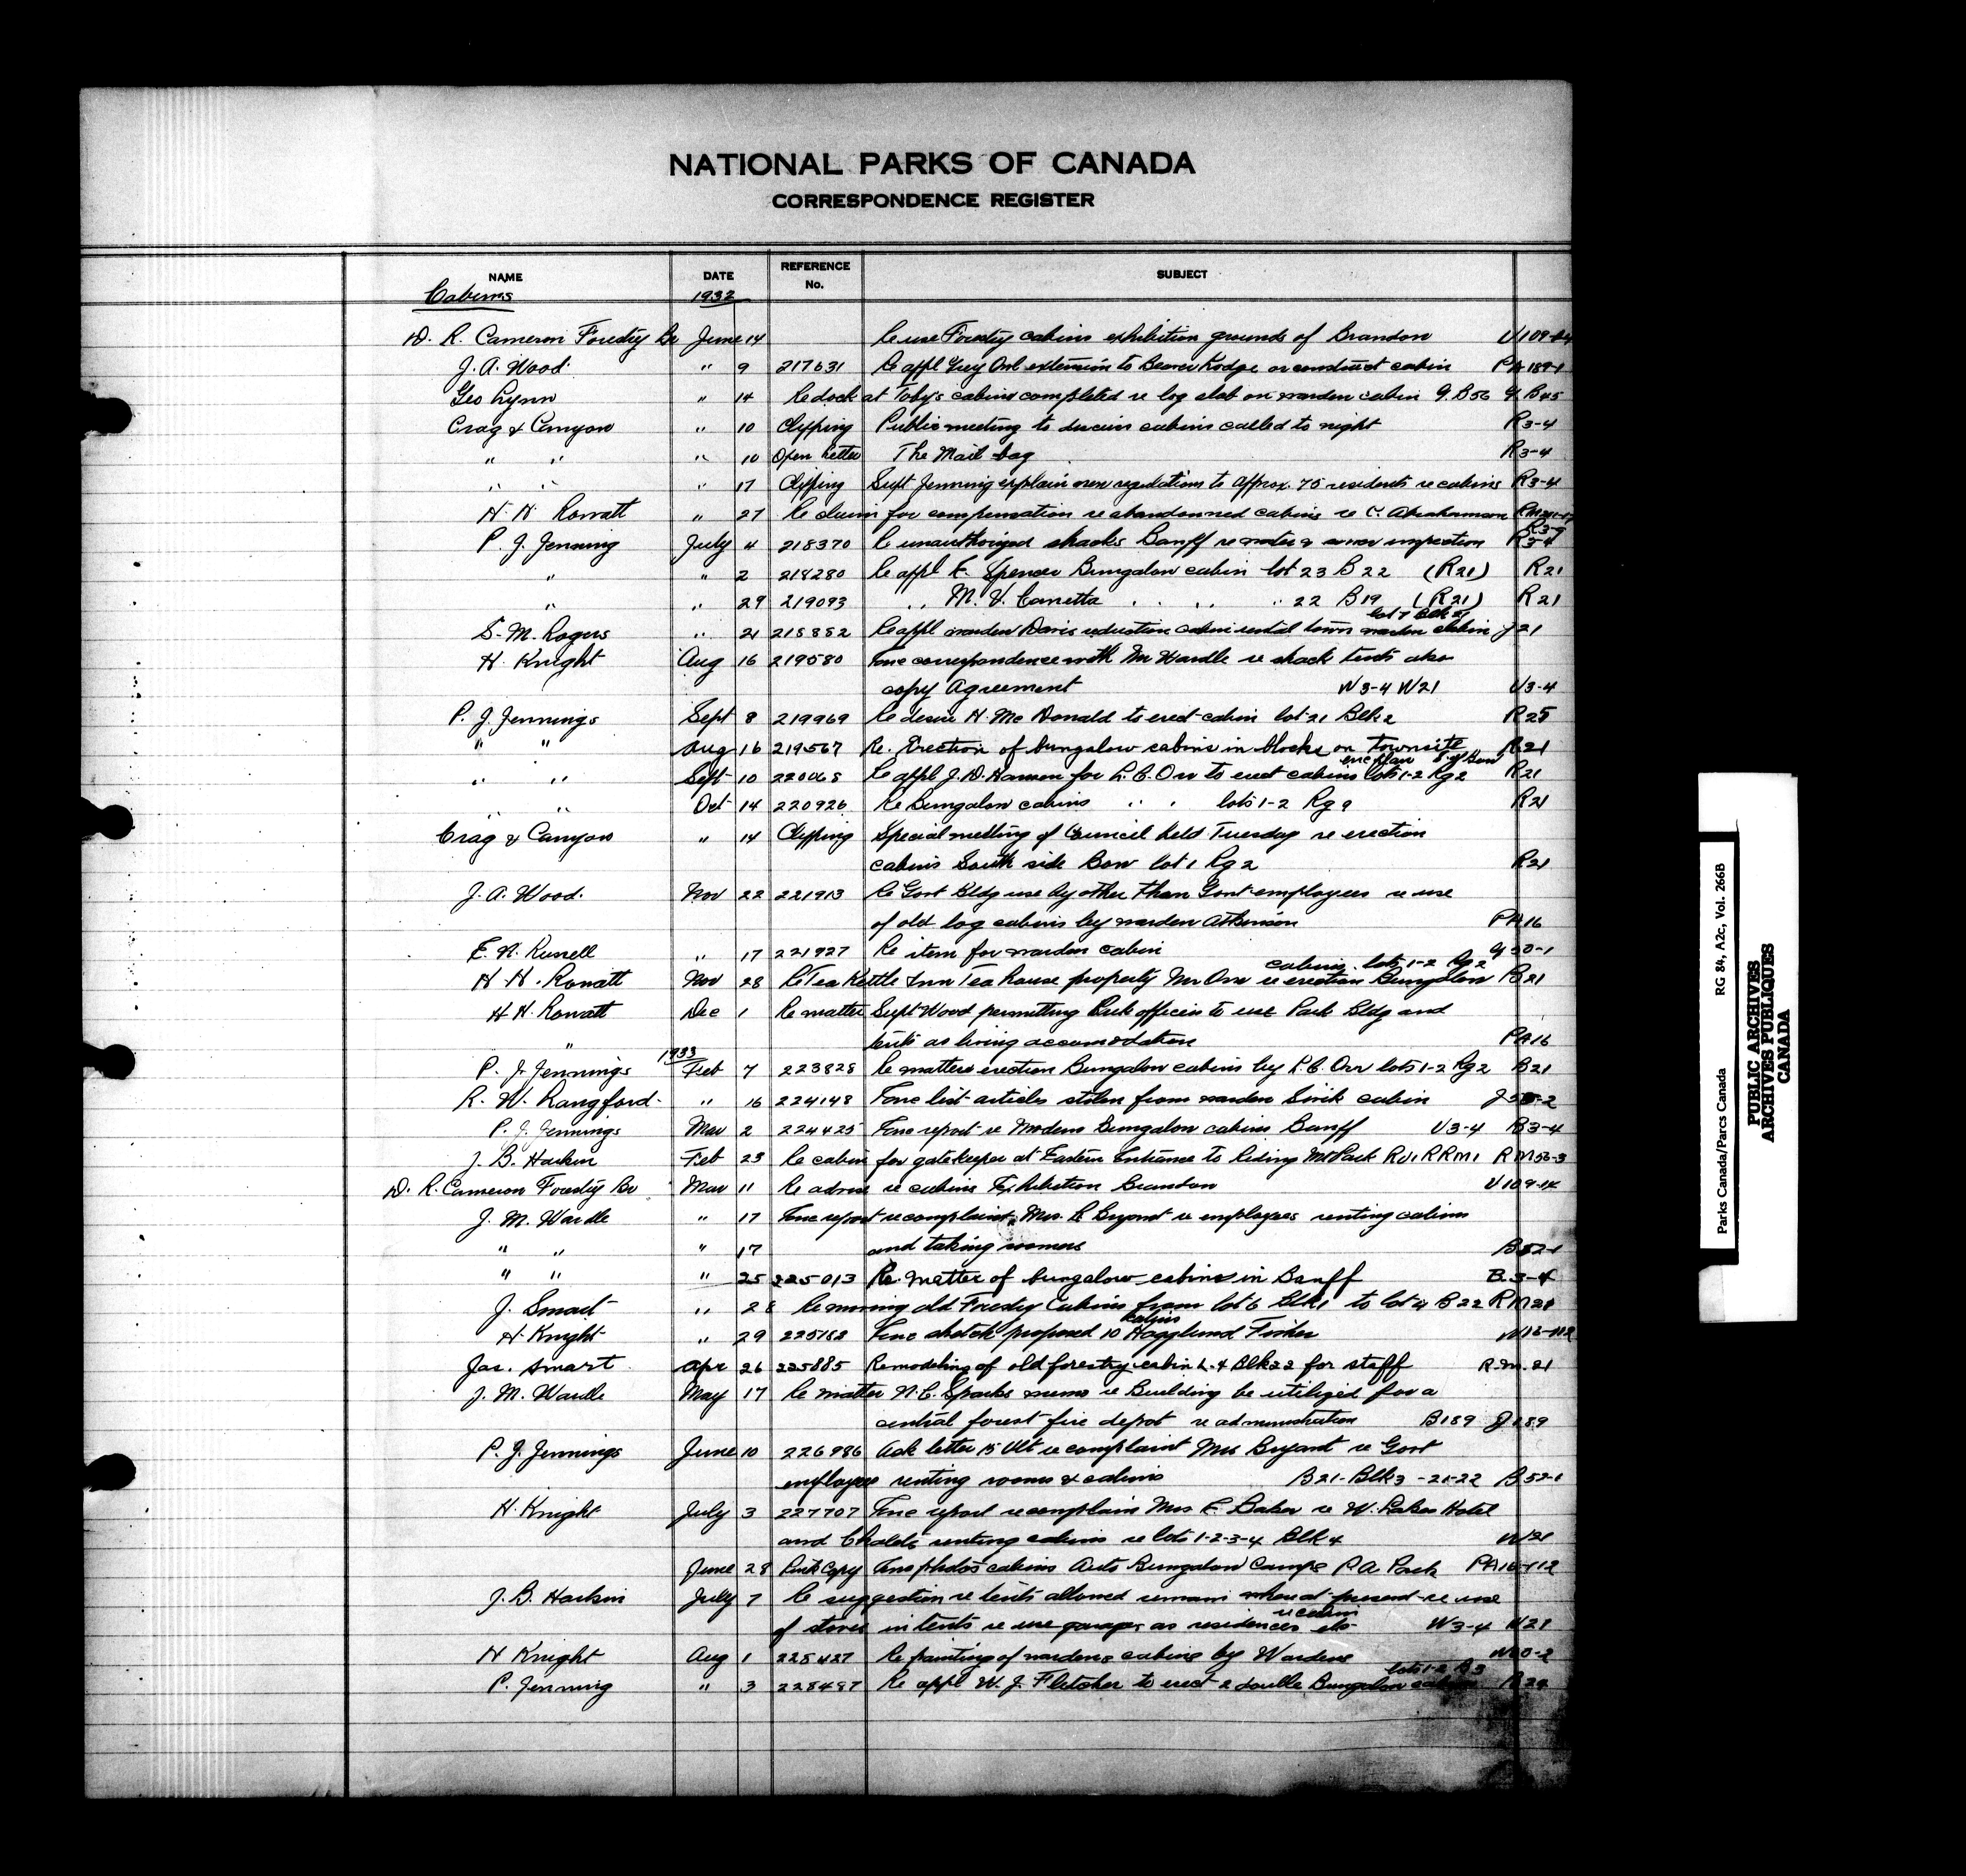 NATIONAL PARKS OF CANADA
CORRESPONDENCE REGISTER
NAME DATE REFERENCE No. SUBJECT
Cabins 1932
D. R. Cameron Forestry Br June 14 Re use Forestry cabins exhibition grounds of Brandon U109-14
J. A. Wood " 9 217631 Re appl Grey Owl extension to Beaver Lodge or construct cabin PA 189-1
Geo Lynn " 14 Re dock at Toby's cabins completed re log slab on warden cabin G. B56 G. B45
Crag & Canyon " 10 Clipping Public meeting to discuss cabins called to night R3-4
" " " 10 Open Letter The Mail bag R3-4
" " " 17 Clipping Supt Jenning explain new regulations to approx. 75 residents re cabins R3-4
H. H. Rowatt " 27 Re claim for compensation re abandonned cabins re C. Abrahamson
R3-9
P. J. Jenning July 4 218370 Re unauthorized shacks Banff re water & sewer inspection R3-4
" " 2 218280 Re appl E. Spencer Bungalow cabin lot 23 B 22 (R21) R21
" " 29 219093 " M. V. Carretta " " " 22 B19 (R21) R21
lot 7 Blk 21
S. M. Rogers " 21 218852 Re appl warden Davis reduction cabin rental town warden cabin J21
H. Knight Aug 16 219580 Enc correspondence with Mr Wardle re shack tents also
copy Agreement W3-4 W21 U3-4
P. J. Jennings Sept 8 219969 Re desire H. McDonald to erect cabin lot 21 Blk 2 R25
" " Aug 16 219567 Re. Erection of bungalow cabins in blocks on Townsite R21
enc plan S of Bow
" " Sept 10 220065 Re appl J. D. Hansen for L. C. Orr to erect cabins lots 1-2 Rg 2 R21
" " Oct 14 220926 Re Bungalow cabins " " lots 1-2 Rg 9 R21
Crag & Canyon " 14 Clipping Special meeting of Council held Tuesday re erection
cabins South side Bow lot 1 Rg 2 R21
J. A. Wood. Nov 22 221913 Re Govt Bldg use by other than Govt employees re use
of old log cabins by warden Atkinson PA16
E. N. Russell " 17 221927 Re item for warden cabin G30-1
cabins lots 1-2 Rg 2
H. H. Rowatt Nov 28 Re Tea Kettle Inn Tea house property Mr Orr re erection Bungalow B21
H. H. Rowatt Dec 1 Re matter Supt Wood permitting Park officers to use Park Bldg and
" tents as living accomodation PA16
1933
P. J. Jennings Feb 7 223828 Re matters erection Bungalow cabins by L. C. Orr lots 1-2 Rg 2 B21
R. W. Langford " 16 224148 Enc list articles stolen from warden cabin
P. J. Jennings Mar 2 224425 Enc report re Modern Bungalow cabins Banff U3-4 B3-4
J. B. Harkin Feb 23 Re cabin for gatekeeper at Eastern Entrance to Riding Mt Park RU1 RRM1 RM56-3
D. R. Cameron Forestry Br Mar 11 Re advise re cabins Exhibition Brandon U109-14
J. M. Wardle " 17 Enc report re complaint Mrs. C Bryant re employees renting cabins
" " " 17 and taking roomers B52-1
" " " 25 225013 Re. Matter of bungalow cabins in Banff B.3-4
J. Smart " 28 Re moving old Forestry Cabins from lot 6 Blk 1 to lot 4 B22 RM21
cabins
H. Knight " 29 225182 Enc sketch proposed 10 Hagglund Fisher W16-112
Jas. Smart Apr 26 225885 Remodeling of old forestry cabin L. 4 Blk 22 for staff R.M. 21
J. M. Wardle May 17 Re matter N. C. Sparks memo re Building be utilized for a
central forest fire depot re administration B189 J189
P. J. Jennings June 10 226986 Ack letter 15 Ult re complaint Mrs Bryant re Govt
employee renting rooms & cabins B21-Blk3-21-22 B52-1
H. Knight July 3 227707 Enc report re complain Mrs E. Baker re W. Lakes Hotel
and Chalets renting cabins re lots 1-2-3-4 Blk 4 W21
June 28 Pink Copy Enc photos cabins Auto Bungalow Camps P. A. Park PA16-112
J. B. Harkin July 7 Re suggestion re tents allowed remain where at present re use
re cabin
of stoves in tents re use garages as residences etc W3-4 W21
H Knight Aug 1 228427 Re painting of wardens cabins by Wardens
lots 1-2 B3
P. Jenning " 3 228487 Re appl W. J. Fletcher to erect 2 double Bungalow cabins
RG 84, A2c, Vol. 266B
Parks Canada/Parcs Canada
PUBLIC ARCHIVES
ARCHIVES PUBLIQUES
CANADA